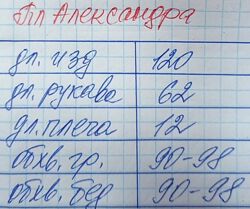 Пл Александра
дл. изд 120
дл. рукава 62
дл. плеча 12
обхв. гр. 90-98
обхв. бед 90-98